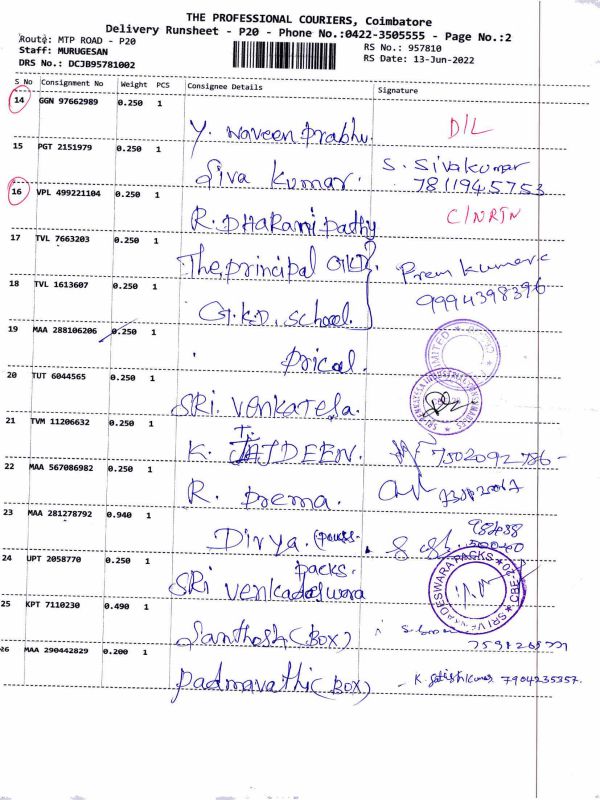 THE PROFESSIONAL COURIERS, Coimbatore
Delivery Runsheet - P20 - Phone No.:0422-3505555 - Page No.:2
Route: MTP ROAD - P20
Staff: MURUGESAN
DRS No.: DCJB95781002
RS No.: 957810
RS Date: 13-Jun-2022
S No Consignment No Weight PCS Consignee Details Signature
14 GGN 97662989 0.250 1
Y. Naveen Prabhu. D/L
15 PGT 2151979 0.250 1
Siva kumar. S. Sivakumar
7811945753
16 VPL 499221104 0.250 1
R. DHARANiPathy C/NRTN
17 TVL 7663203 0.250 1
The principal GKD. Prem kumar
18 TVL 1613607 0.250 1
9994398396
G.K.D. school.
19 MAA 288106206 0.250 1
pricol.
20 TUT 6044565 0.250 1
SRI. Venkatesa.
21 TVM 11206632 0.250 1
K. JAIDEEN. 7502092786
22 MAA 567086982 0.250 1
R. prema.
23 MAA 281278792 0.940 1
Divya.
24 UPT 2058770 0.250 1
packs.
SRi venkadeswara
SRI VENKADESWARA PACKS CBE-20
25 KPT 7110230 0.490 1
Santhosh (BOX)
26 MAA 290442829 0.200 1
padmavathi (BOX) K. Satishkumar 7904235357.